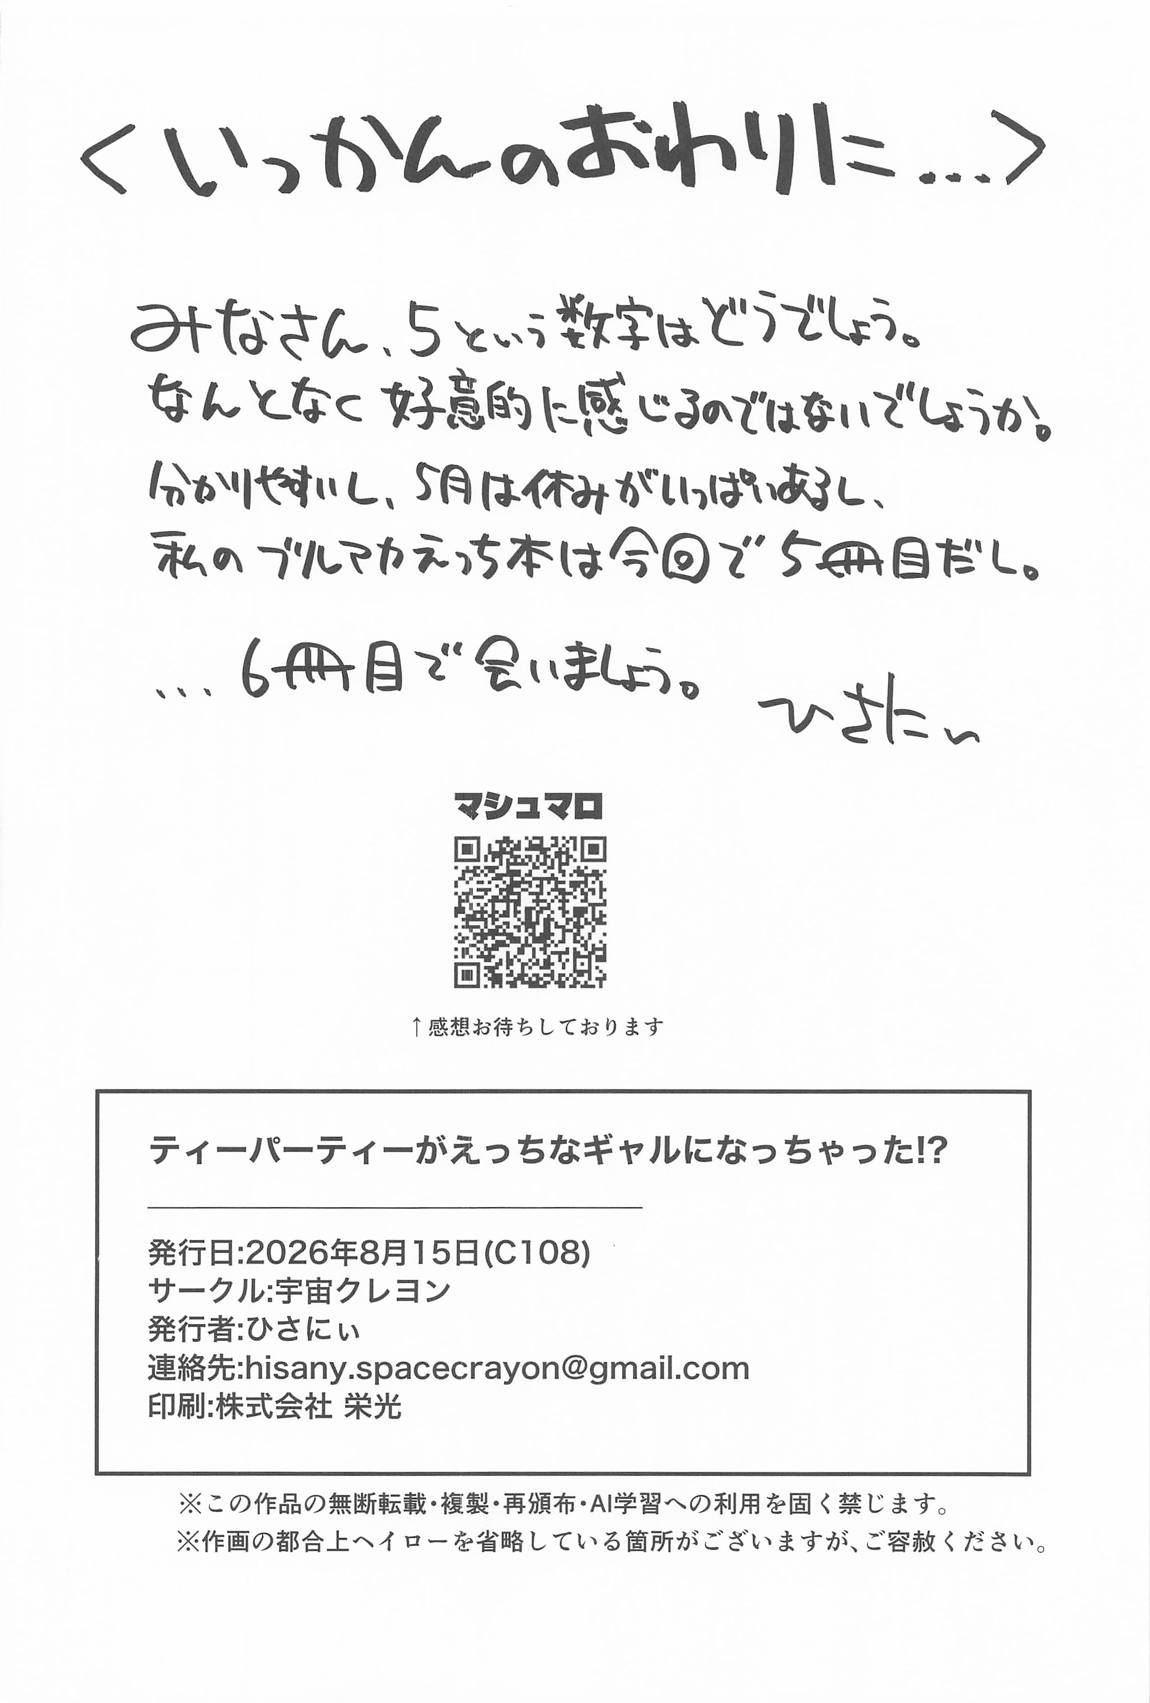 <いっかんのおわりに...>
みなさん、5という数字はどうでしょう。
なんとなく好意的に感じるのではないでしょうか。
分かりやすいし、5月は休みがいっぱいあるし、
私のブルマカえっち本は今回で5冊目だし。
...6冊目で会いましょう。
ひさにぃ
マシュマロ
↑感想お待ちしております
ティーパーティーがえっちなギャルになっちゃった!?
発行日:2026年8月15日(C108)
サークル:宇宙クレヨン
発行者:ひさにぃ
連絡先:hisany.spacecrayon@gmail.com
印刷:株式会社 栄光
※この作品の無断転載・複製・再頒布・AI学習への利用を固く禁じます。
※作画の都合上ヘイローを省略している箇所がございますが、ご容赦ください。